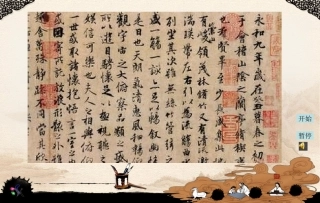 永和九年歲在癸丑暮春之初
于會稽山陰之蘭亭脩稧事
也羣賢畢至少長咸集此
有崇山峻領茂林脩竹又有清流激
湍暎帶左右引以為流觴曲
列坐其次雖無絲竹管弦
盛一觴一詠亦足以暢敘幽情
是日也天朗氣清惠風和暢仰
觀宇宙之大俯察品類之盛
所以遊目騁懷足以極視聽
娛信可樂也夫人之相與俯仰
一世或取諸懷抱悟言一室之內
或因寄所託放浪形骸之外雖
趣舍萬殊靜躁不同當其欣
开始
暂停